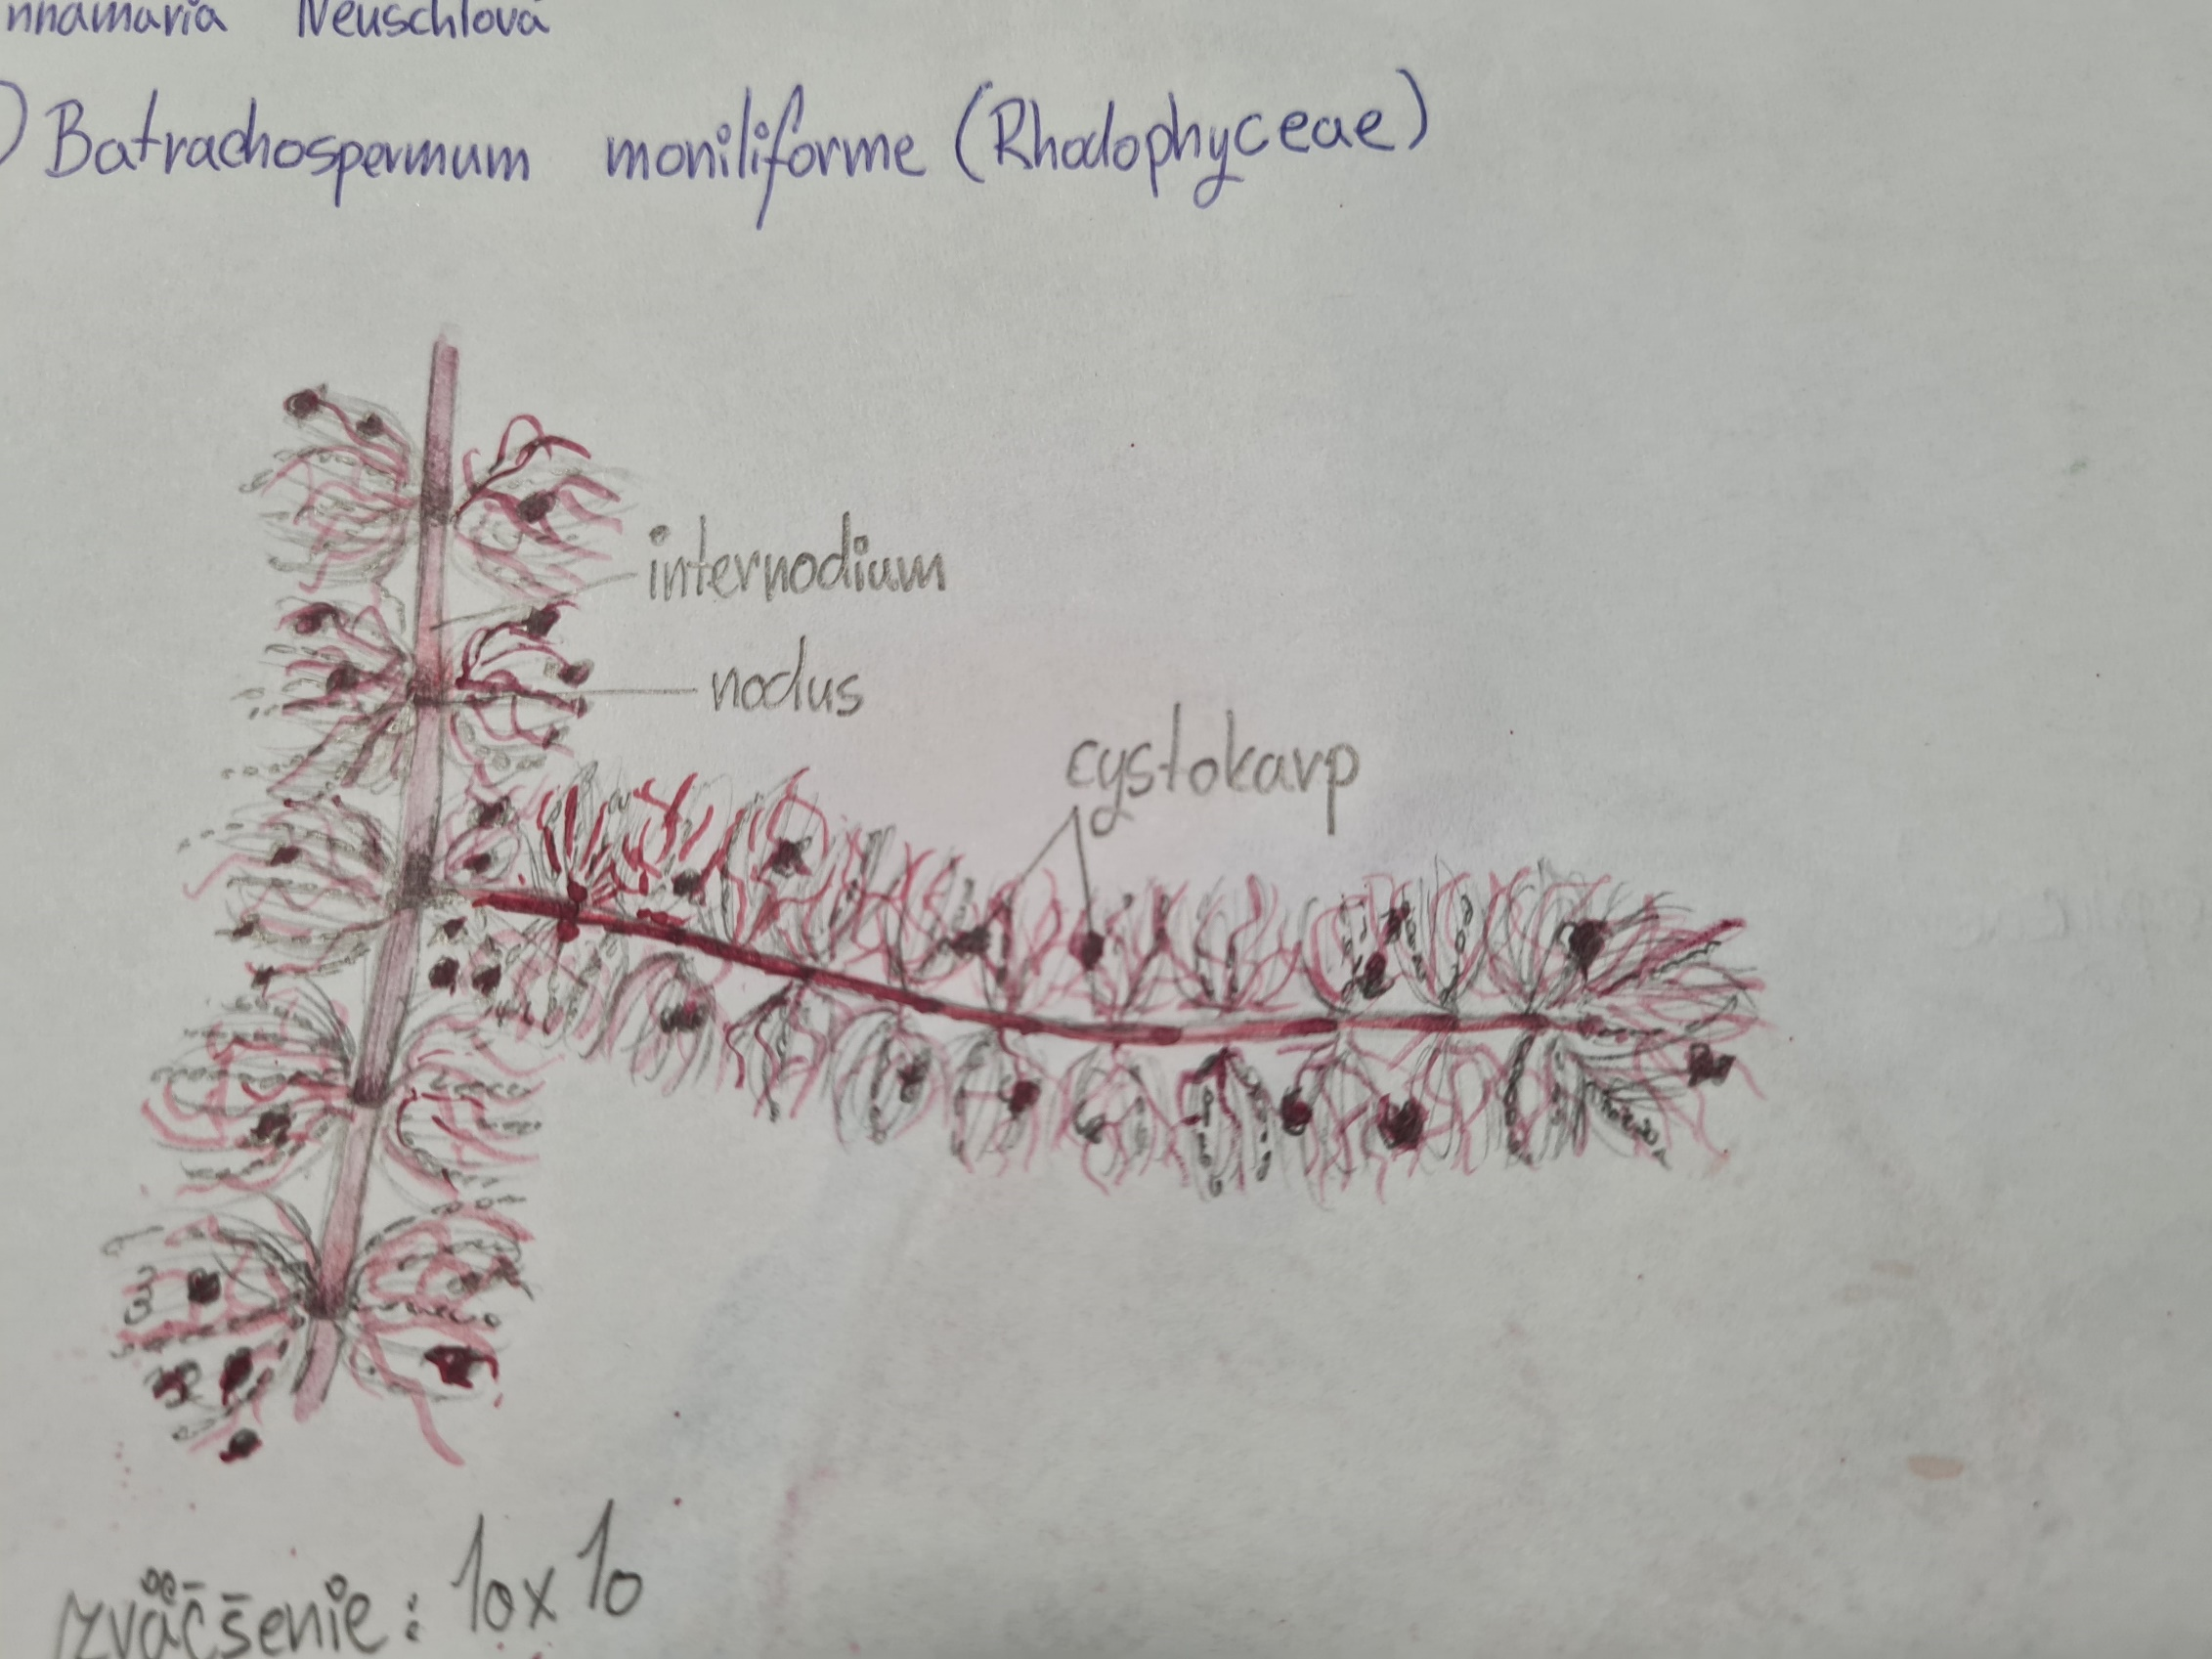 nnamaria Neuschlová
) Batrachospermum moniliforme (Rhodophyceae)
internodium
nodus
cystokarp
zväčšenie: 10x10